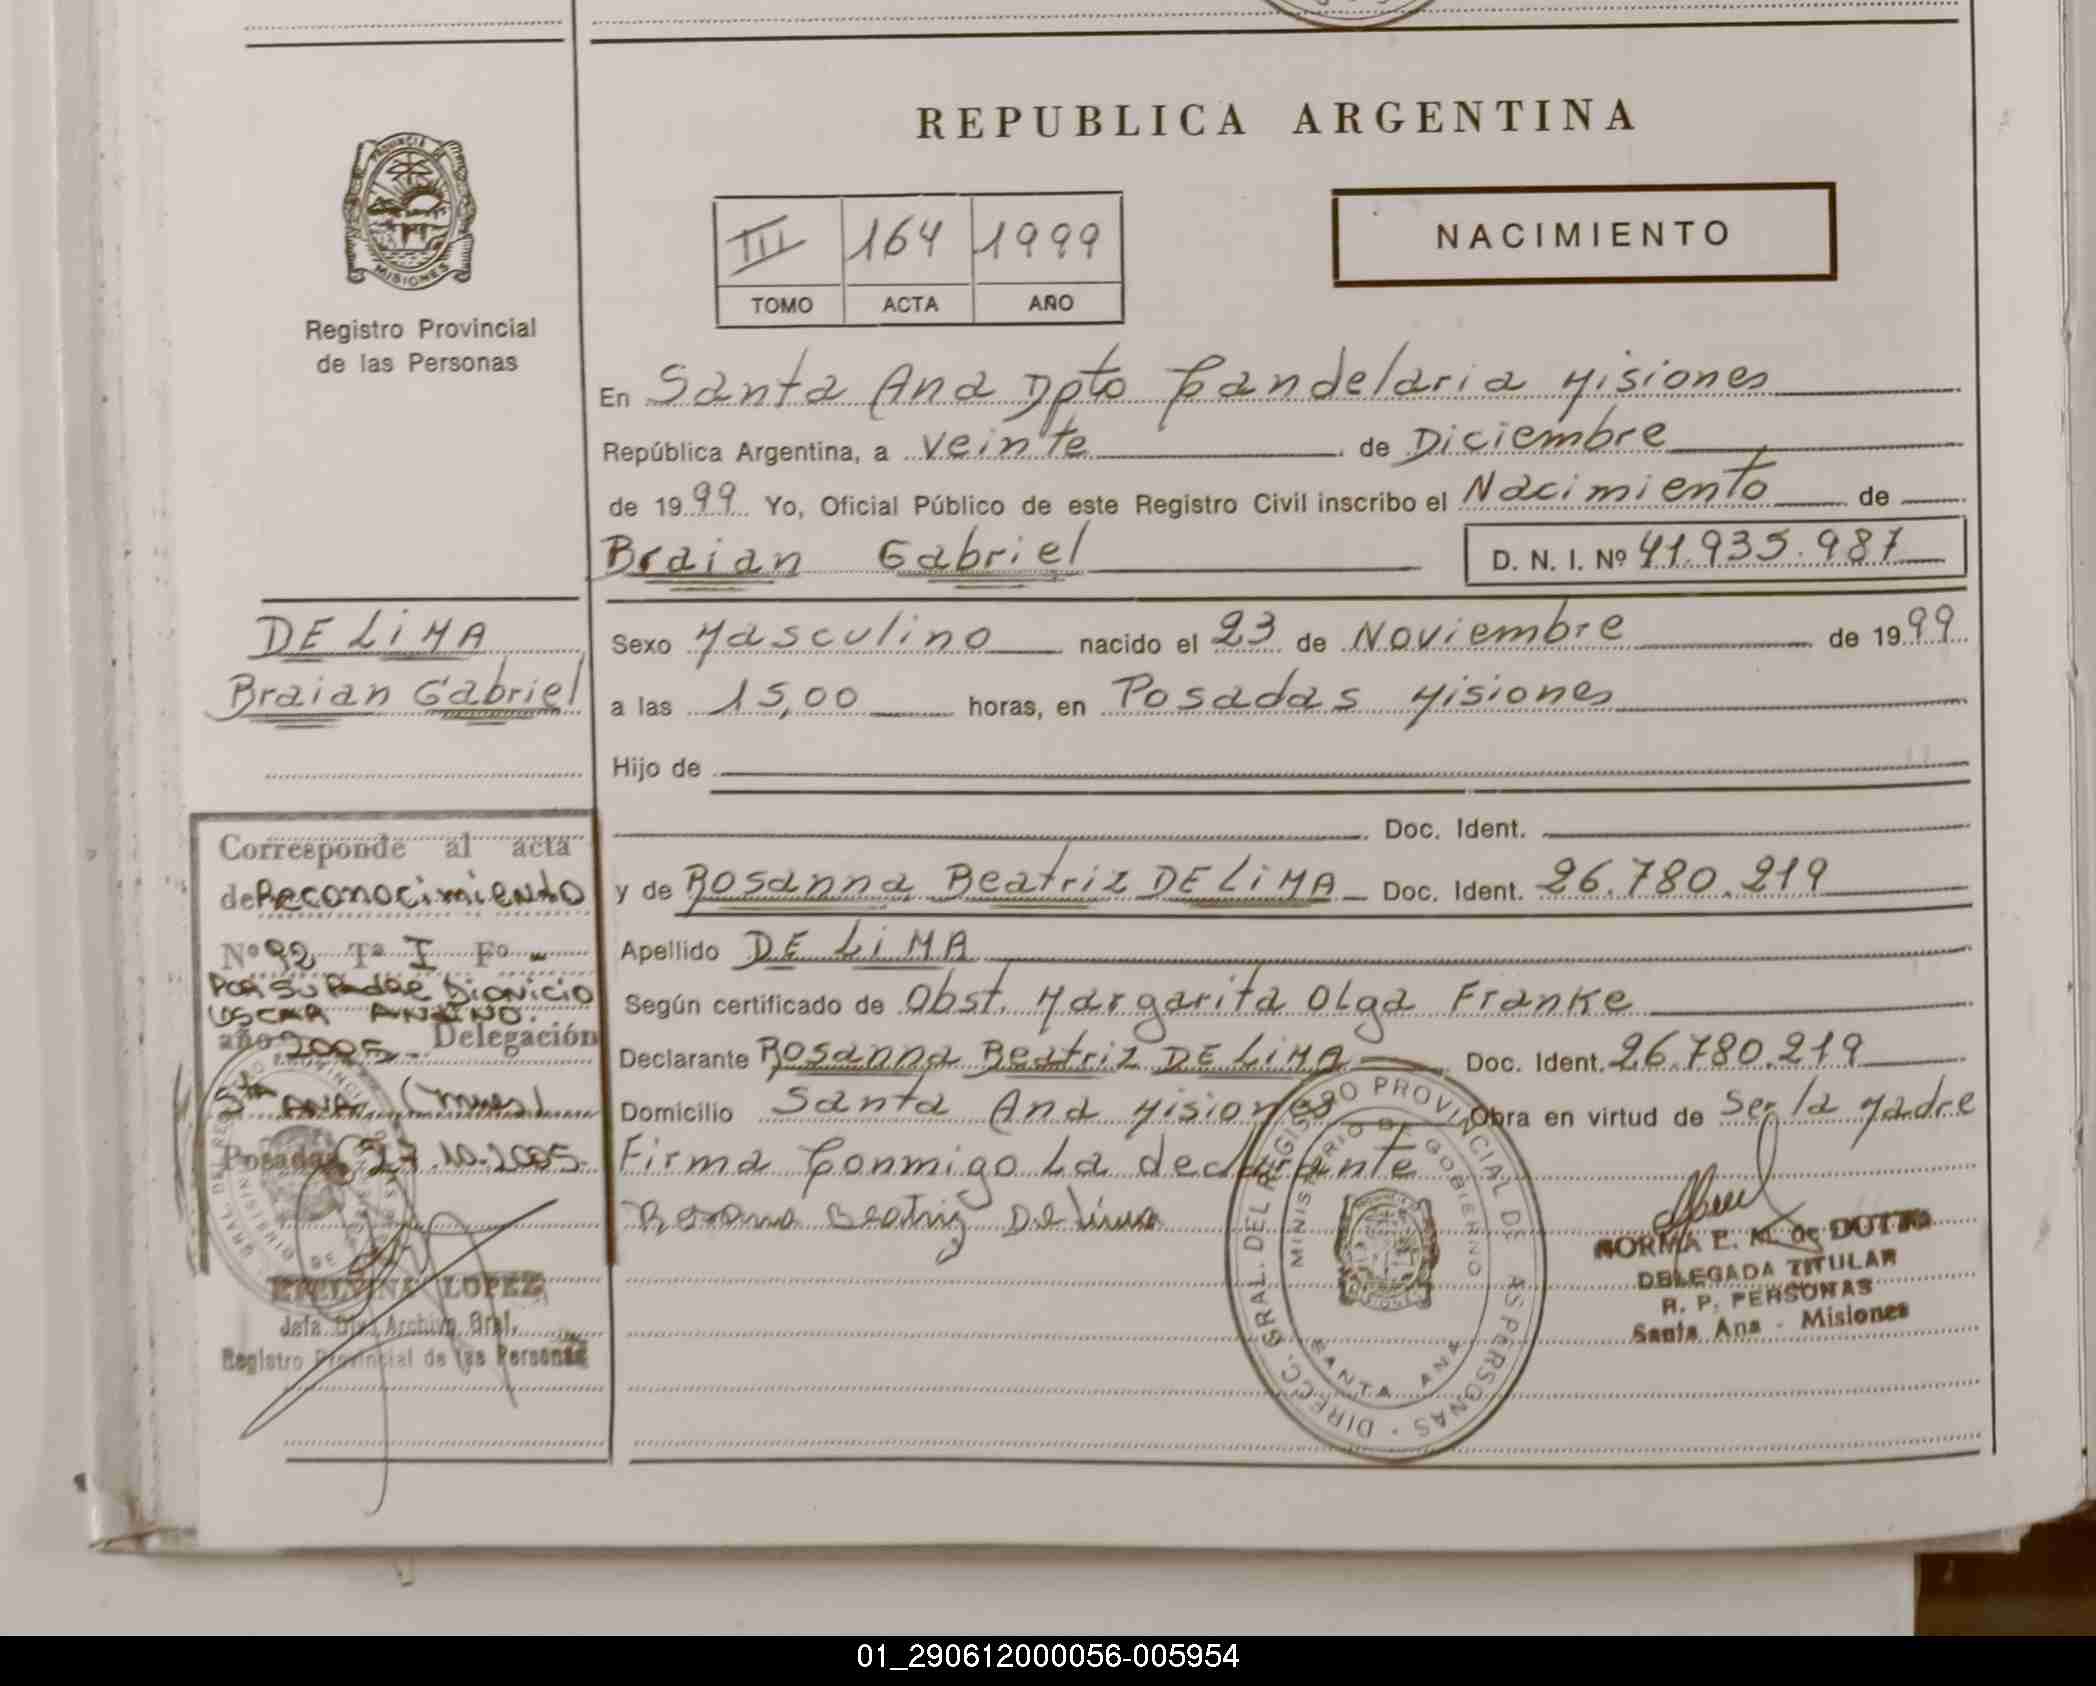 REPUBLICA ARGENTINA
PROVINCIA DE
MISIONES
Registro Provincial
de las Personas
III 164 1999
TOMO ACTA AÑO
NACIMIENTO
En Santa Ana Dpto Candelaria Misiones
República Argentina, a veinte de Diciembre
de 1999 Yo, Oficial Público de este Registro Civil inscribo el Nacimiento de
Braian Gabriel D. N. I. Nº 41.935.987
Sexo Masculino nacido el 23 de Noviembre de 1999
a las 15,00 horas, en Posadas Misiones
Hijo de
Doc. Ident.
y de Rosanna Beatriz DE LiMA Doc. Ident. 26.780.219
Apellido DE LiMA
Según certificado de Obst. Margarita Olga Franke
Declarante Rosanna Beatriz DE LiMA Doc. Ident. 26.780.219
Domicilio Santa Ana Misiones Obra en virtud de Ser la Madre
Firma Conmigo La declarante
Rosana Beatriz De Lima
DE LiMA
Braian Gabriel
Corresponde al acta
de Reconocimiento
Nº 92 Tº I Fº -
POR SU PADRE Dionicio
OSCAR
año 2005 Delegación
Sta ANA (Mnes)
Posadas 27.10.2005
LOPEZ
Jefa Archivo Gral.
Registro Provincial de las Personas
DIRECC. GRAL. DEL REGISTRO PROVINCIAL DE LAS PERSONAS
MINISTERIO DE GOBIERNO
SANTA ANA
NORMA E. M. de DUTTO
DELEGADA TITULAR
R. P. PERSONAS
Santa Ana - Misiones
01_290612000056-005954